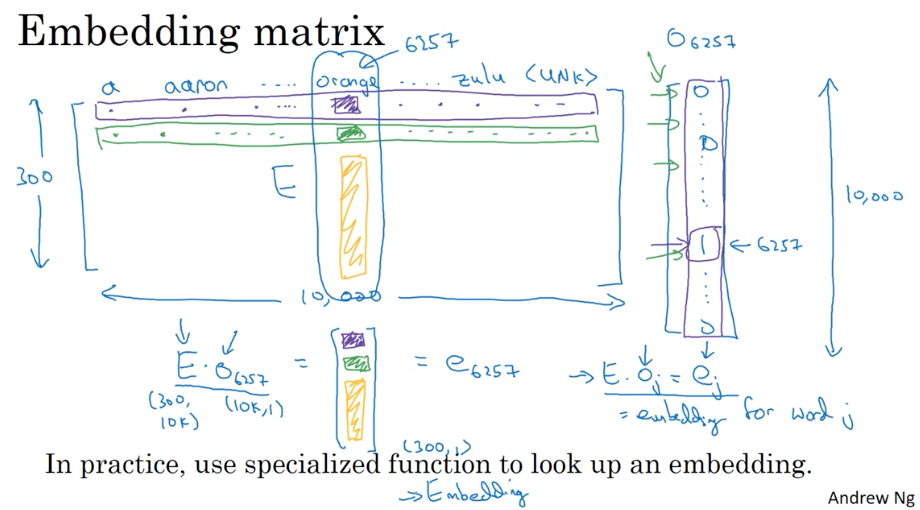 Embedding matrix
6257
O6257
a aaron ..... orange ..... zulu <UNK>
300
E
10,000
1
6257
10,000
0
0
0
E · O6257 = = e6257
(300, 10K) (10K,1)
(300,1)
→ E · Oj = ej
= embedding for word j
In practice, use specialized function to look up an embedding.
→ Embedding
Andrew Ng